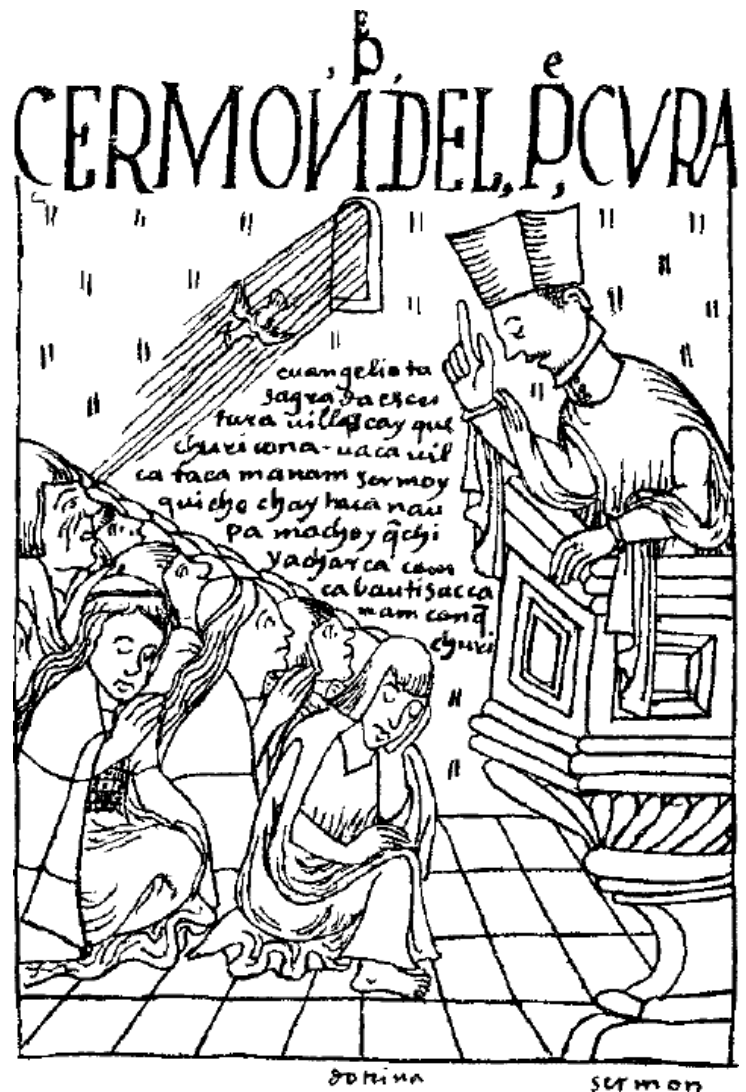 CERMON DEL Pe CVRA
euangelio ta
sagrada escri
tura uillascay que
churicona uaca uil
ca taca manam sermoy
quicho chay taca nau
pa machoy q̃chi
yacharca cam
ca bautisacca
mam canq̃
churi
dotrina
sermon